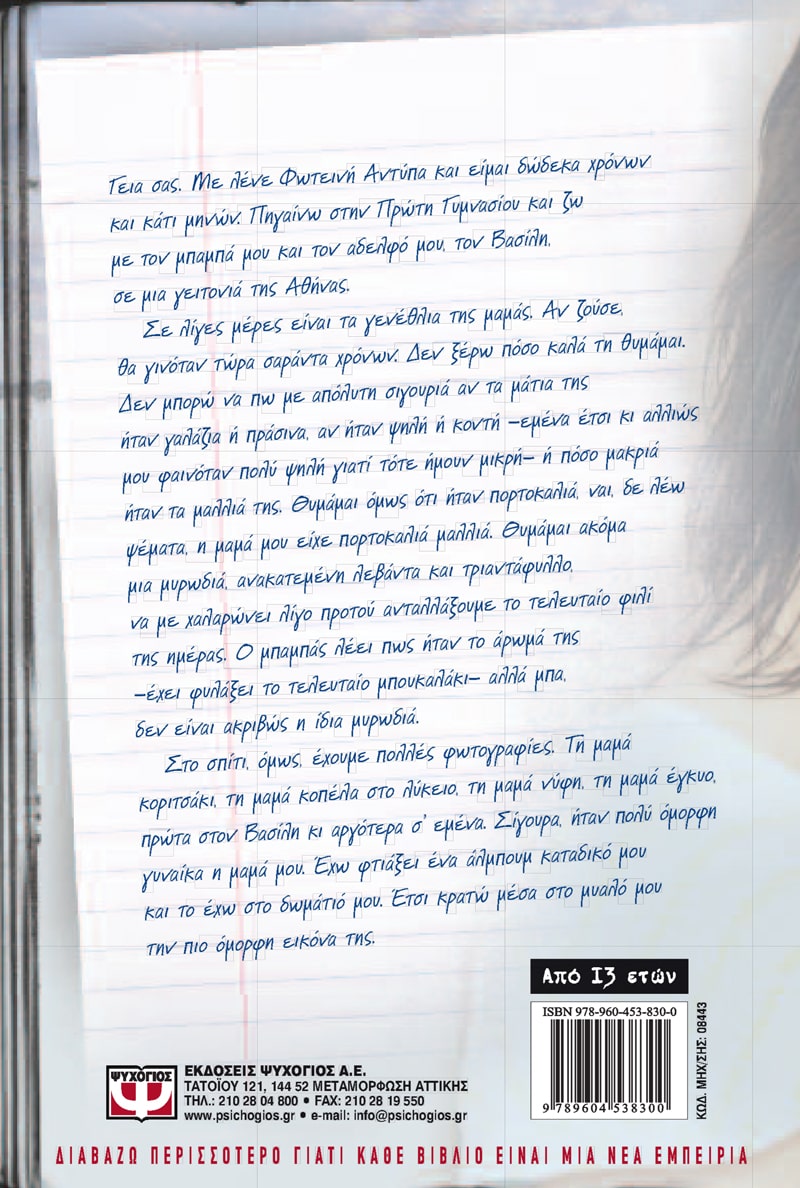 Γεια σας. Με λένε Φωτεινή Αντύπα και είμαι δώδεκα χρόνων
και κάτι μηνών. Πηγαίνω στην Πρώτη Γυμνασίου και ζω
με τον μπαμπά μου και τον αδελφό μου, τον Βασίλη,
σε μια γειτονιά της Αθήνας.
Σε λίγες μέρες είναι τα γενέθλια της μαμάς. Αν ζούσε,
θα γινόταν τώρα σαράντα χρόνων. Δεν ξέρω πόσο καλά τη θυμάμαι.
Δεν μπορώ να πω με απόλυτη σιγουριά αν τα μάτια της
ήταν γαλάζια ή πράσινα, αν ήταν ψηλή ή κοντή –εμένα έτσι κι αλλιώς
μου φαινόταν πολύ ψηλή γιατί τότε ήμουν μικρή– ή πόσο μακριά
ήταν τα μαλλιά της. Θυμάμαι όμως ότι ήταν πορτοκαλιά, ναι, δε λέω
ψέματα, η μαμά μου είχε πορτοκαλιά μαλλιά. Θυμάμαι ακόμα
μια μυρωδιά, ανακατεμένη λεβάντα και τριαντάφυλλο,
να με χαλαρώνει λίγο προτού ανταλλάξουμε το τελευταίο φιλί
της ημέρας. Ο μπαμπάς λέει πως ήταν το άρωμά της
–έχει φυλάξει το τελευταίο μπουκαλάκι– αλλά μπα,
δεν είναι ακριβώς η ίδια μυρωδιά.
Στο σπίτι, όμως, έχουμε πολλές φωτογραφίες. Τη μαμά
κοριτσάκι, τη μαμά κοπέλα στο λύκειο, τη μαμά νύφη, τη μαμά έγκυο,
πρώτα στον Βασίλη κι αργότερα σ' εμένα. Σίγουρα, ήταν πολύ όμορφη
γυναίκα η μαμά μου. Έχω φτιάξει ένα άλμπουμ καταδικό μου
και το έχω στο δωμάτιό μου. Έτσι κρατώ μέσα στο μυαλό μου
την πιο όμορφη εικόνα της.
Από 13 ετών
ISBN 978-960-453-830-0
9 789604 538300
ΚΩΔ. ΜΗΧ/ΣΗΣ: 08443
ΨΥΧΟΓΙΟΣ
ΕΚΔΟΣΕΙΣ ΨΥΧΟΓΙΟΣ Α.Ε.
ΤΑΤΟΪΟΥ 121, 144 52 ΜΕΤΑΜΟΡΦΩΣΗ ΑΤΤΙΚΗΣ
ΤΗΛ.: 210 28 04 800 • FAX: 210 28 19 550
www.psichogios.gr • e-mail: info@psichogios.gr
ΔΙΑΒΑΖΩ ΠΕΡΙΣΣΟΤΕΡΟ ΓΙΑΤΙ ΚΑΘΕ ΒΙΒΛΙΟ ΕΙΝΑΙ ΜΙΑ ΝΕΑ ΕΜΠΕΙΡΙΑ